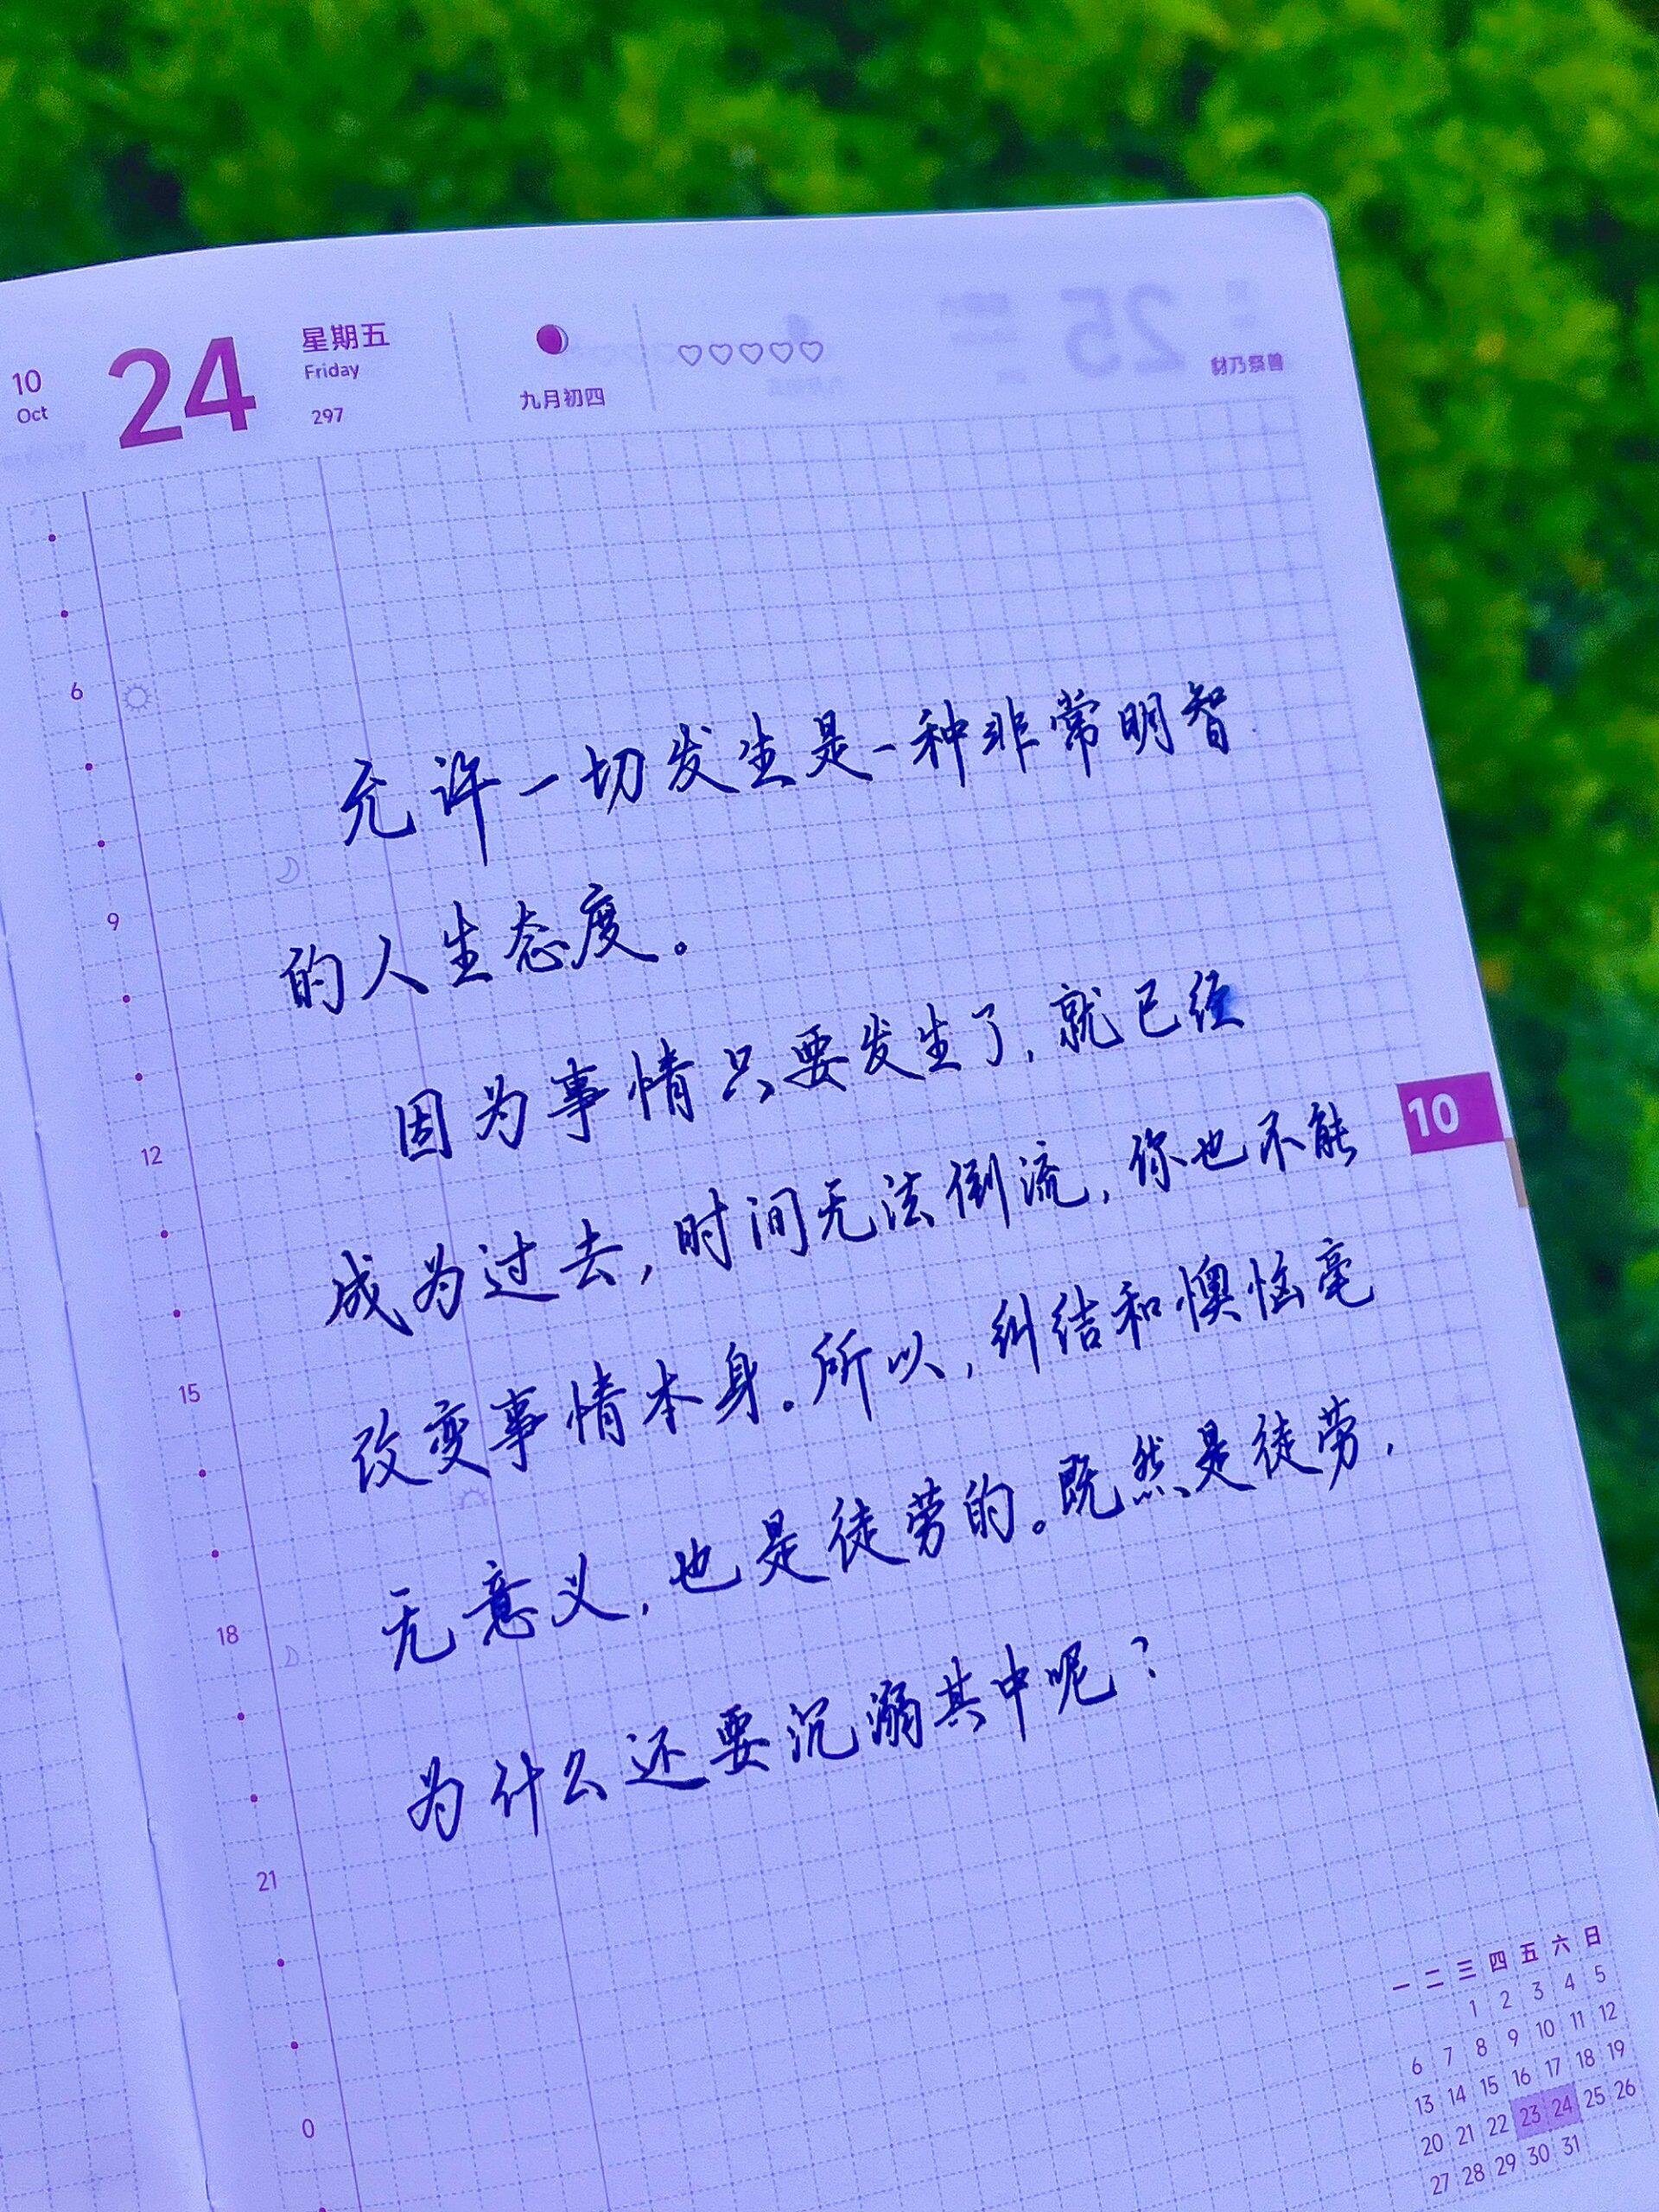 10
Oct
24
星期五
Friday
297
九月初四
豺乃祭兽
6
9
12
15
18
21
0
允许一切发生是一种非常明智
的人生态度。
因为事情只要发生了,就已经
成为过去,时间无法倒流,你也不能
改变事情本身。所以,纠结和懊恼毫
无意义,也是徒劳的。既然是徒劳,
为什么还要沉溺其中呢?
10
一 二 三 四 五 六 日
1 2 3 4 5
6 7 8 9 10 11 12
13 14 15 16 17 18 19
20 21 22 23 24 25 26
27 28 29 30 31